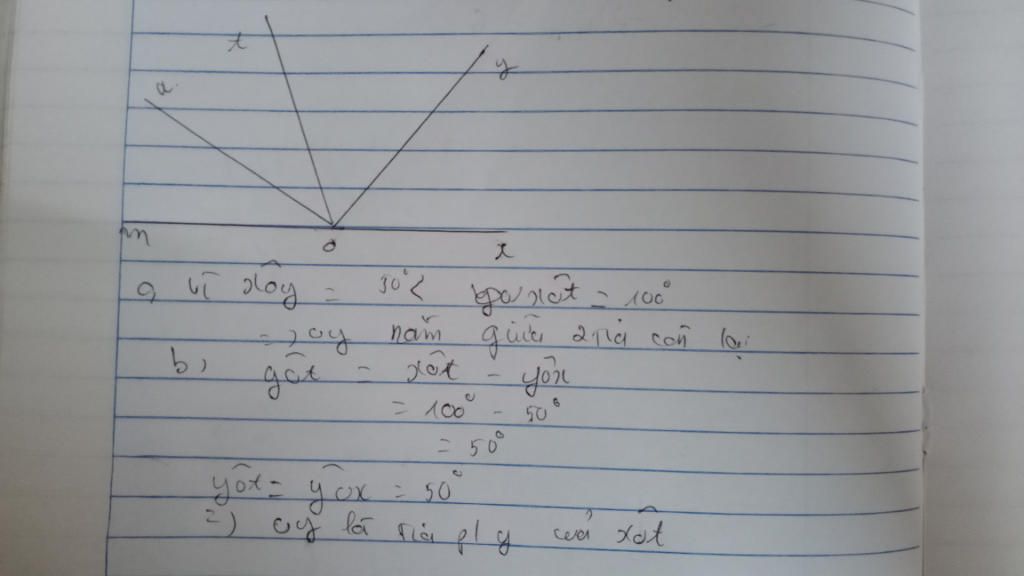 t
y
a
m
O
x
a, Vì xÔy = 50° < xÔt = 100°
=> oy nằm giữa 2 tia còn lại
b, yÔt = xÔt - yÔx
= 100° - 50°
= 50°
yÔt = yÔx = 50°
=> oy là tia p/ g của xÔt